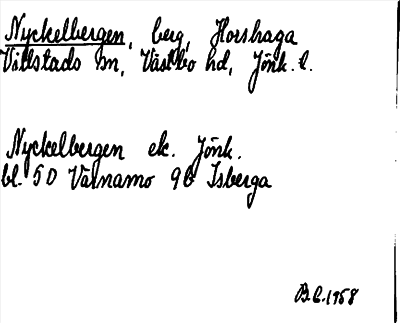 Nyckelbergen, berg, Horshaga
Villstads sn, Västbo hd, Jönk. l.
Nyckelbergen ek. Jönk.
bl. 5D Värnamo 9b Isberga
B.L. 1958